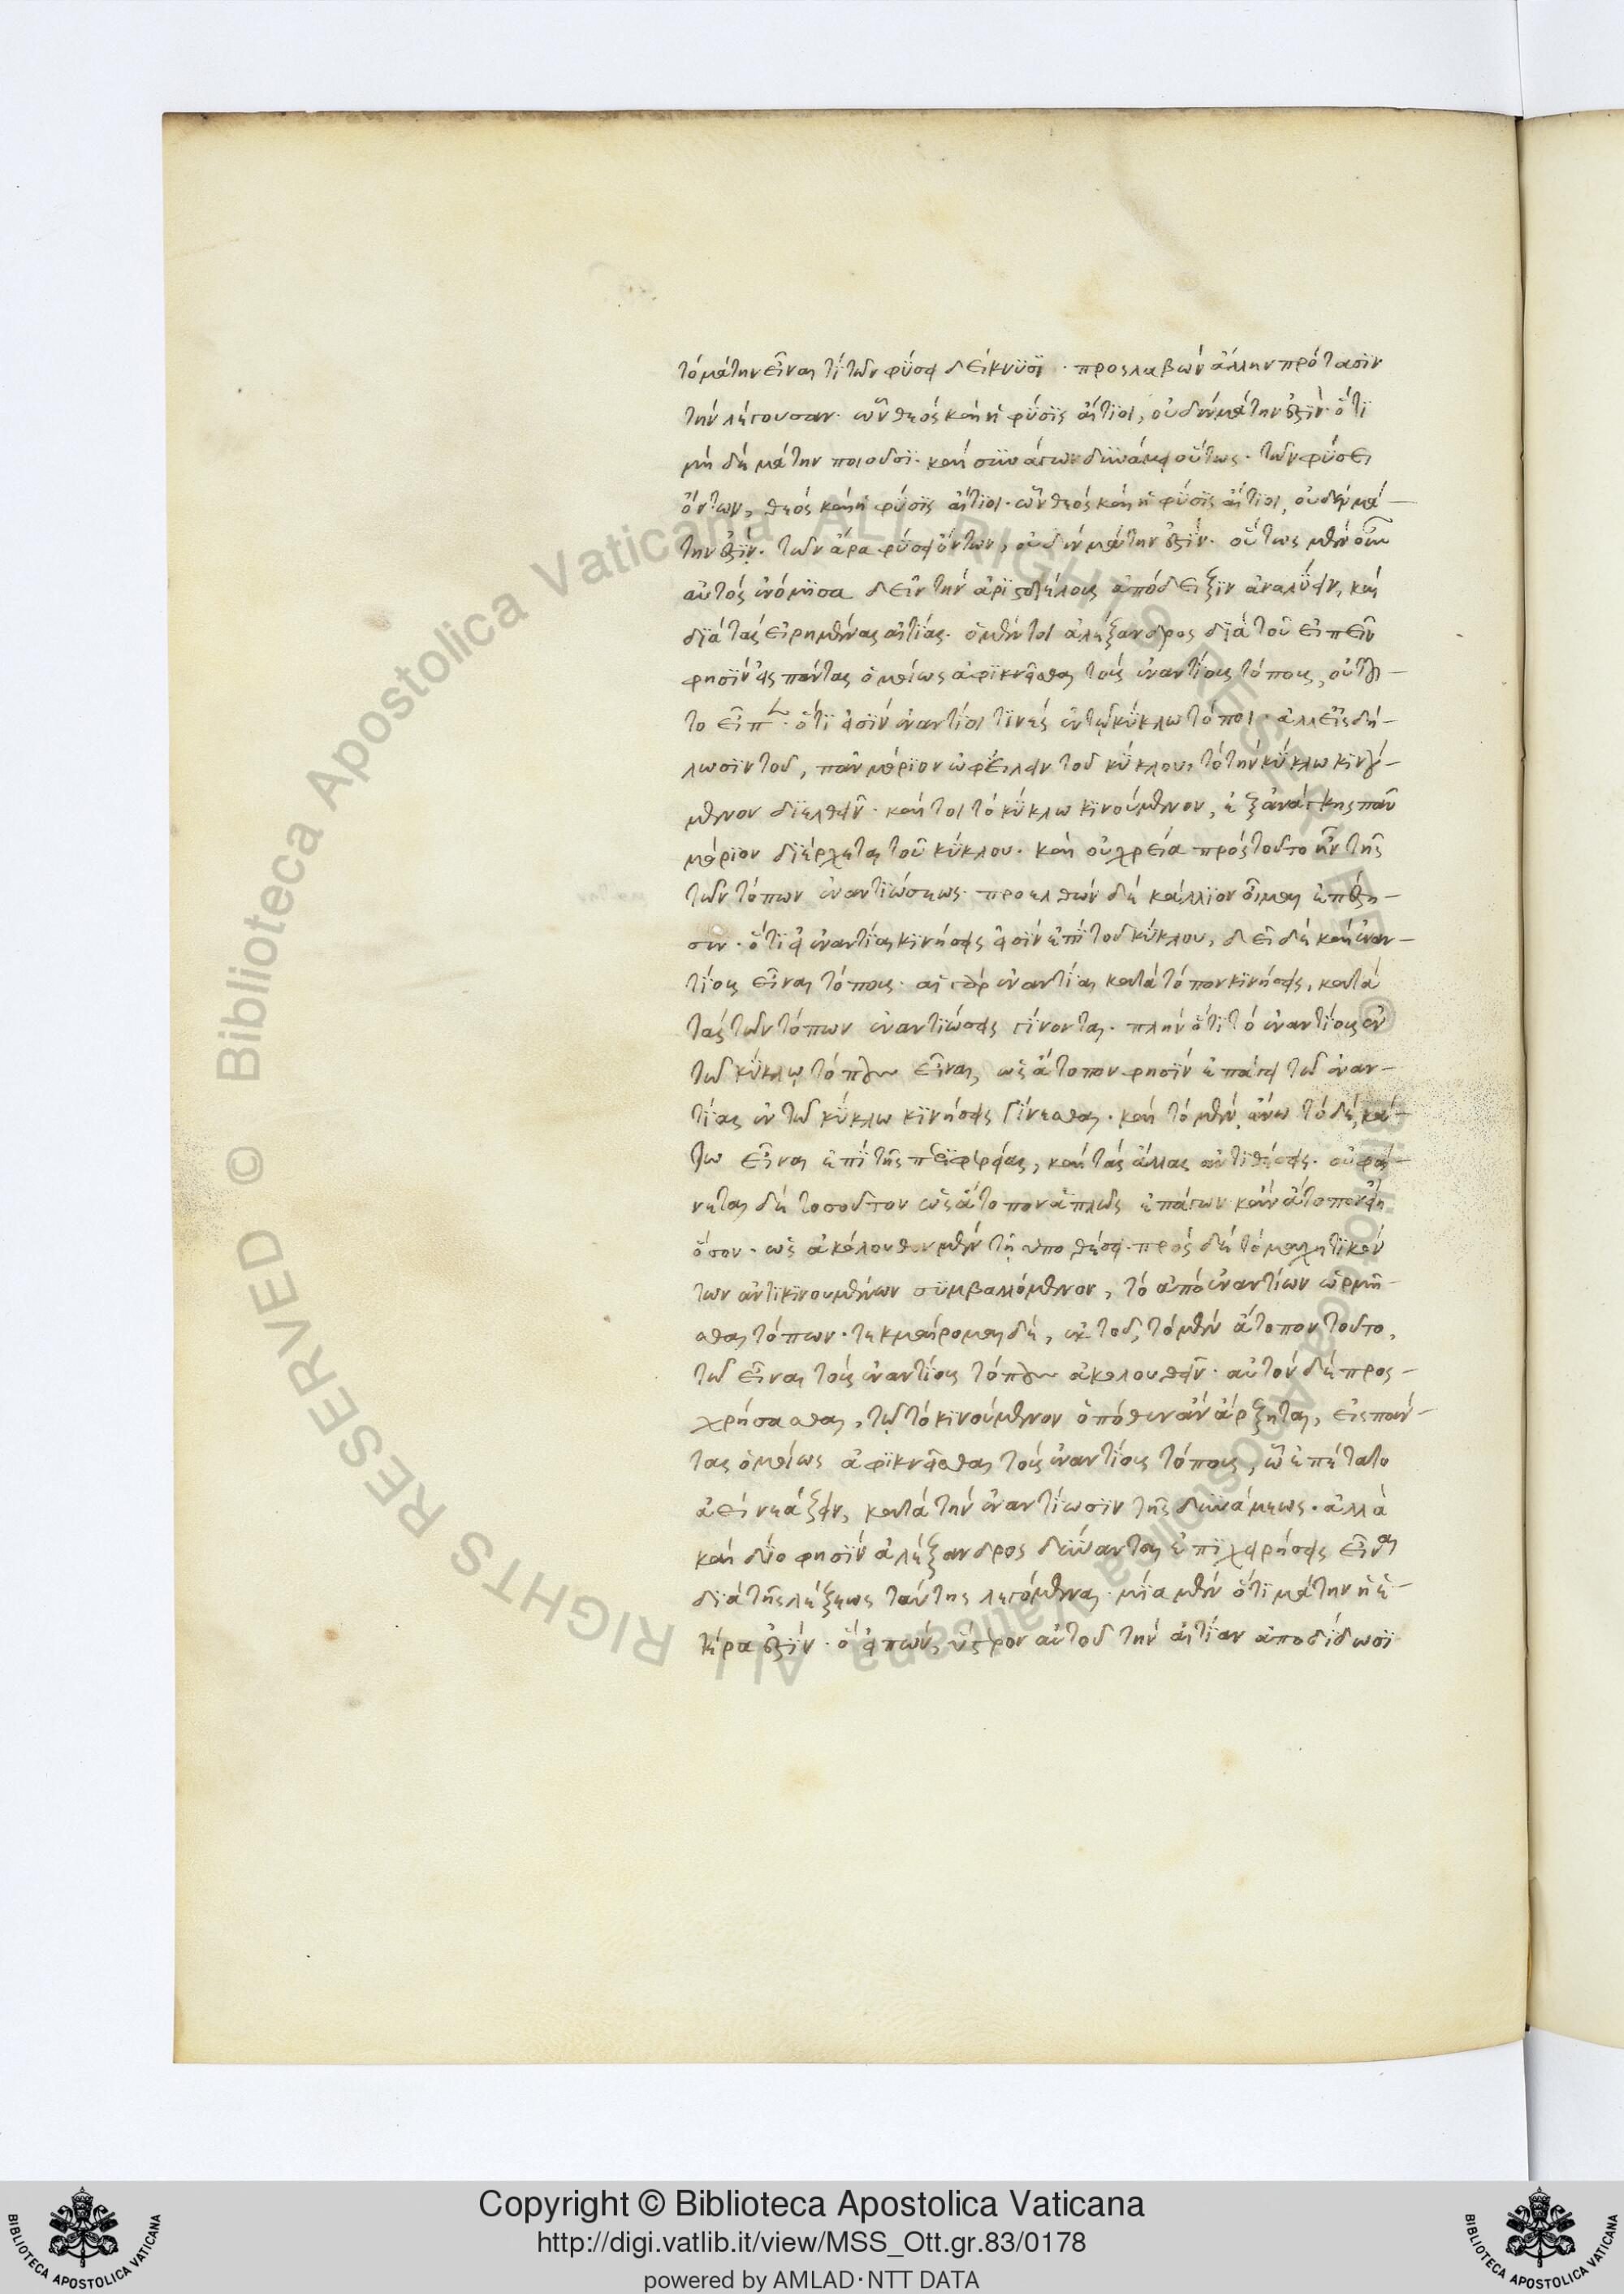 τὸ μάτην εἶναί τι τῶν φύσει δείκνυσι· προσλαβὼν ἄλλην πρότασιν
τὴν λέγουσαν· ὧν θεὸς καὶ ἡ φύσις αἴτιοι, οὐδὲν μάτην ἐστίν· ὅτι
μὴ δὲ μάτην ποιοῦσι· καὶ συνάγων δυνάμει οὕτως· τῶν φύσει
ὄντων, θεὸς καὶ ἡ φύσις αἴτιοι· ὧν θεὸς καὶ ἡ φύσις αἴτιοι, οὐδὲν μά-
την ἐστίν· τῶν ἄρα φύσει ὄντων, οὐδὲν μάτην ἐστίν· οὕτως μὲν οὖν
αὐτὸς ἐνόμισα δεῖν τὴν ἀριστοτέλους ἀπόδειξιν ἀναλύειν, καὶ
διὰ τὰς εἰρημένας αἰτίας· ὁ μέντοι ἀλέξανδρος διὰ τοῦ εἰπεῖν
φησὶν εἰς πάντας ὁμοίως ἀφικνεῖσθαι τοὺς ἐναντίους τόπους, οὐ τοῦ-
το εἶπεν· ὅτι εἰσὶν ἐναντίοι τινὲς ἐν τῷ κύκλω τόποι· ἀλλ εἰς δή-
λωσιν τοῦ, πᾶν μόριον ὀφείλειν τοῦ κύκλου, τὸ τὴν κύκλω κινού-
μενον διελθεῖν· καί τοι τὸ κύκλω κινούμενον, ἐξ ἀνάγκης πᾶν
μόριον διέρχεται τοῦ κύκλου· καὶ οὐ χρεία πρὸς τοῦτο ἦν τῆς
τῶν τόπων ἐναντιώσεως· προελθὼν δὲ κάλλιον οἶμαι ἐπέστη-
σεν· ὅτι εἰ ἐναντίαι κινήσεις εἰσὶν ἐπὶ τοῦ κύκλου, δεῖ δὲ καὶ ἐναν-
τίους εἶναι τόπους· αἱ γὰρ ἐναντίαι κατὰ τόπον κινήσεις, κατὰ
τὰς τῶν τόπων ἐναντιώσεις γίνονται· πλὴν ὅτι τὸ ἐναντίους ἐν
τῷ κύκλῳ τόπους εἶναι, ὡς ἄτοπον φησὶν ἐπάγει τῷ ἐναν-
τίας ἐν τῷ κύκλω κινήσεις γίνεσθαι· καὶ τὸ μὲν, ἄνω τὸ δὲ, κά-
τω εἶναι ἐπὶ τῆς περιφερείας, καὶ τὰς ἄλλας ἀντιθέσεις· οὐ φαί-
νεται δὲ τοσοῦτον ὡς ἄτοπον ἁπλῶς ἐπάγων κἂν ἄτοπον ᾖ
ὅσον· ὡς ἀκόλουθον μὲν τῇ ὑποθέσει· πρὸς δὲ τὸ μαχητικὸν
των ἀντικινουμένων συμβαλλόμενον, τὸ ἀπὸ ἐναντίων ὡρμῆ-
σθαι τόπων· τεκμαίρομαι δὲ, ἐκ τοῦ, τὸ μὲν ἄτοπον τοῦτο,
τῷ εἶναι τοὺς ἐναντίους τόπους ἀκολουθεῖν· αὐτὸν δὲ προσ-
χρήσασθαι, τῷ τὸ κινούμενον ὁπόθεν ἂν ἄρξηται, εἰς πάν-
τας ὁμοίως ἀφικνεῖσθαι τοὺς ἐναντίους τόπους, ᾧ ἐπέτατο
κατὰ τὴν ἐναντίωσιν τῆς δυνάμεως· ἀλλὰ
καὶ δύο φησὶν ἀλέξανδρος δύνανται ἐπιχειρήσεις εἶναι
διὰ τῆς λέξεως ταύτης λεγόμεναι· μία μὲν ὅτι μάτην ἡ ἑ-
τέρα ἐστίν· ὃ εἰπὼν, ὕστερον αὐτοῦ τὴν αἰτίαν ἀποδίδωσι
Copyright © Biblioteca Apostolica Vaticana
http://digi.vatlib.it/view/MSS_Ott.gr.83/0178
powered by AMLAD·NTT DATA